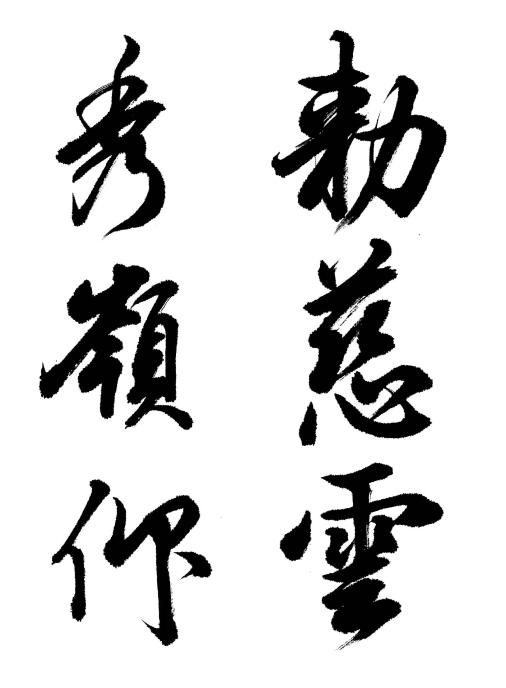 勅慈雲
秀嶺仰